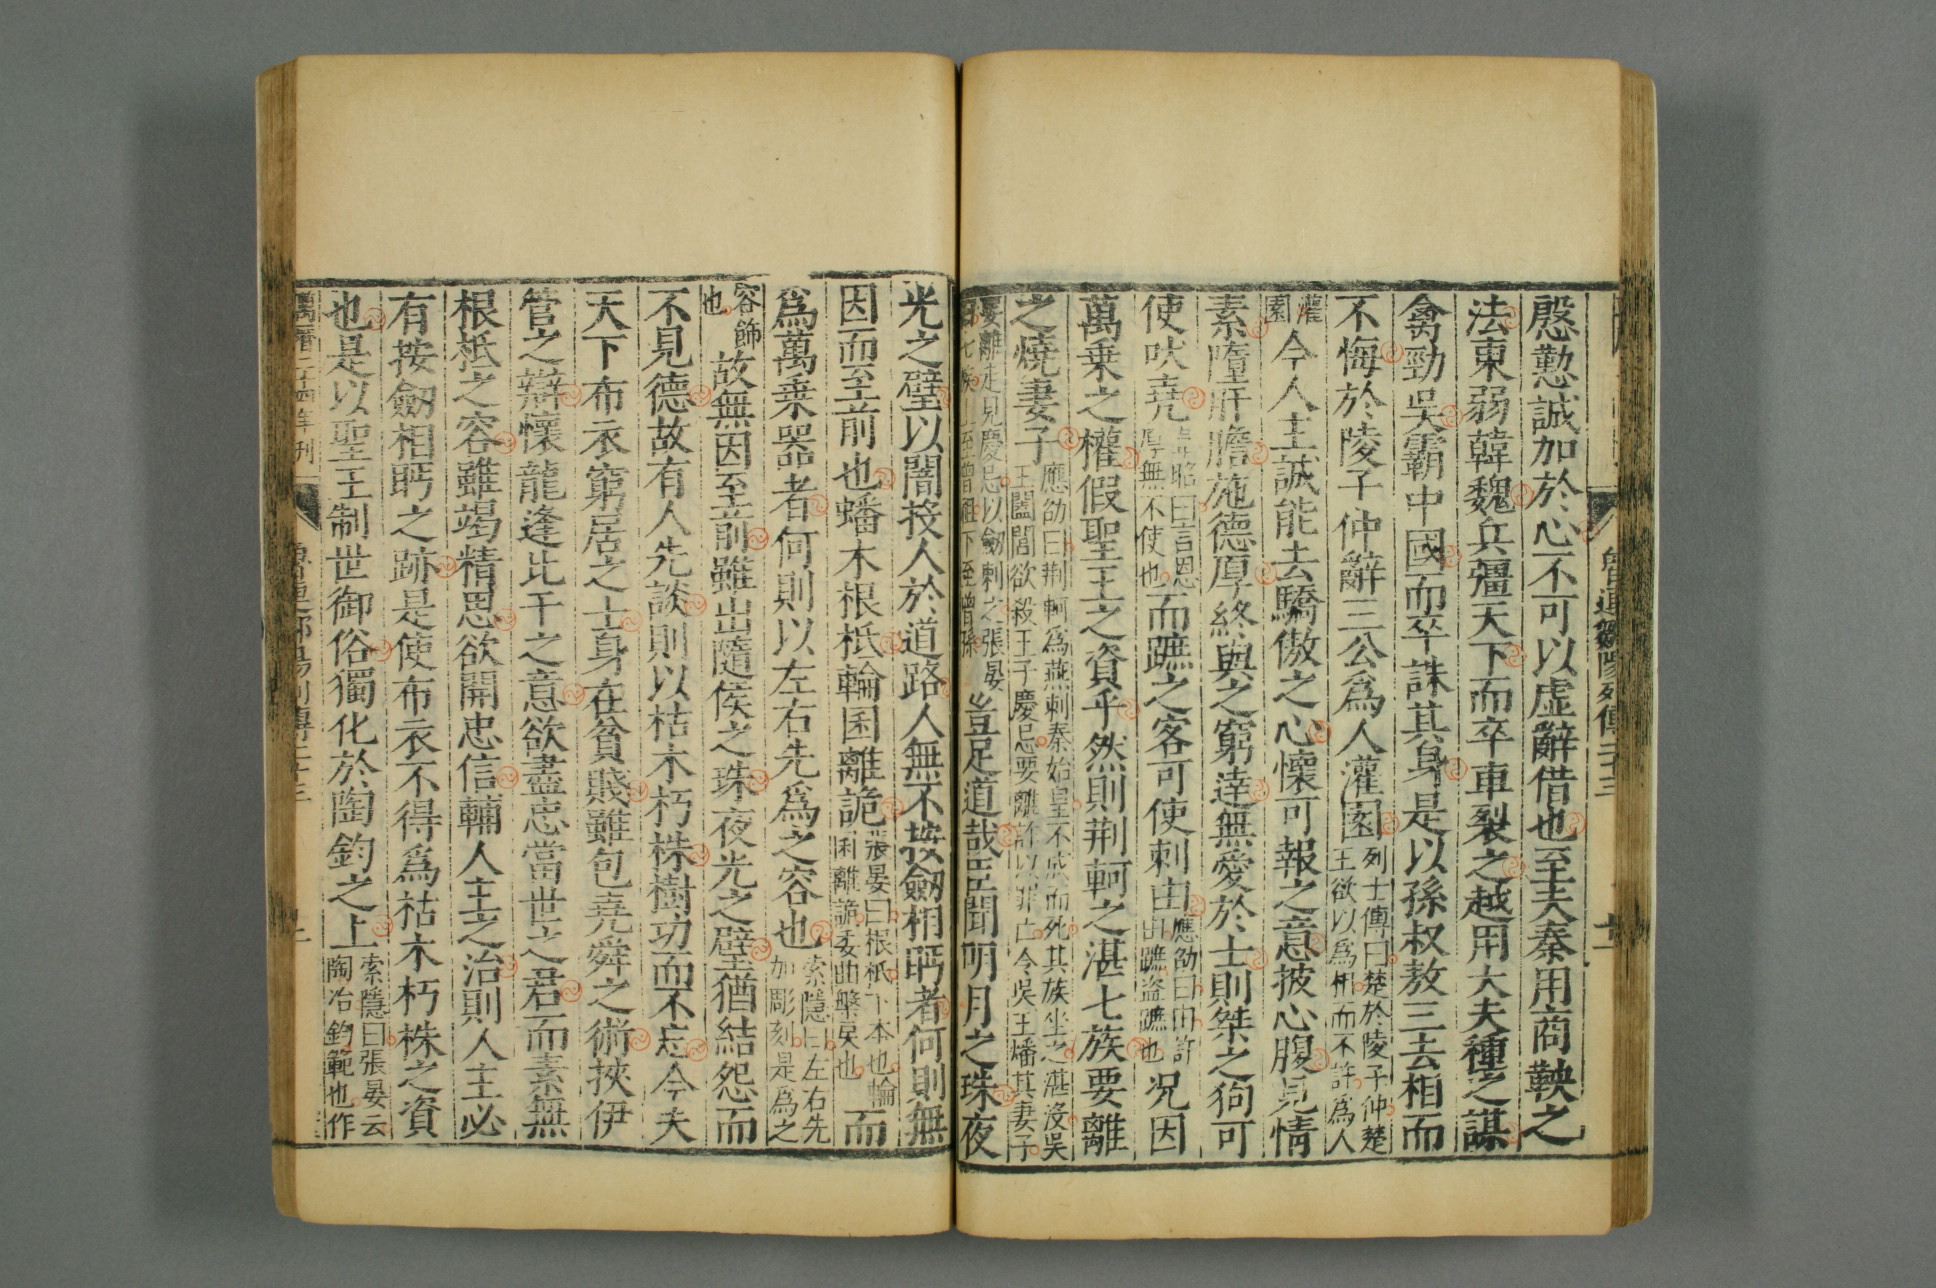 魯連鄒陽列傳二十三
慇懃誠加於心不可以虛辭借也至夫秦用商鞅之
法東弱韓魏兵彊天下而卒車裂之越用大夫種之謀
禽勁吳霸中國而卒誅其身是以孫叔敖三去相而
不悔於陵子仲辭三公爲人灌園列士傳曰楚於陵子仲楚
王欲以爲相而不許爲人
灌園
今人主誠能去驕傲之心懷可報之意披心腹見情
素隳肝膽施德厚終與之窮達無愛於士則桀之狗可
使吠堯韋昭曰言恩
厚無不使也
而蹠之客可使刺由應劭曰由許
由蹠盜蹠也
況因
萬乗之權假聖王之資乎然則荆軻之湛七族要離
之燒妻子應劭曰荆軻爲燕刺秦始皇不成而死其族坐之湛沒吳
王闔閭欲殺王子慶忌要離詐以罪亡令吳王燔其妻子
要離走見慶忌以劒刺之張晏
曰七族上至曾祖下至曾孫
豈足道哉臣聞明月之珠夜
光之璧以闇投人於道路人無不按劒相眄者何則無
因而至前也蟠木根柢輪囷離詭張晏曰根柢下本也輪
囷離詭委曲槃戾也
而
爲萬乗器者何則以左右先爲之容也索隱曰左右先
加彫刻是爲之
容飾
也
故無因至前雖出隨侯之珠夜光之璧猶結怨而
不見德故有人先談則以枯木朽株樹功而不忘今夫
天下布衣窮居之士身在貧賤雖包堯舜之術挾伊
管之辯懷龍逢比干之意欲盡忠當世之君而素無
根柢之容雖竭精思欲開忠信輔人主之治則人主必
有按劒相眄之跡是使布衣不得爲枯木朽株之資
也是以聖王制世御俗獨化於陶鈞之上索隱曰張晏云
陶冶鈞範也作
萬曆二十四年刊
魯連鄒陽列傳二十三